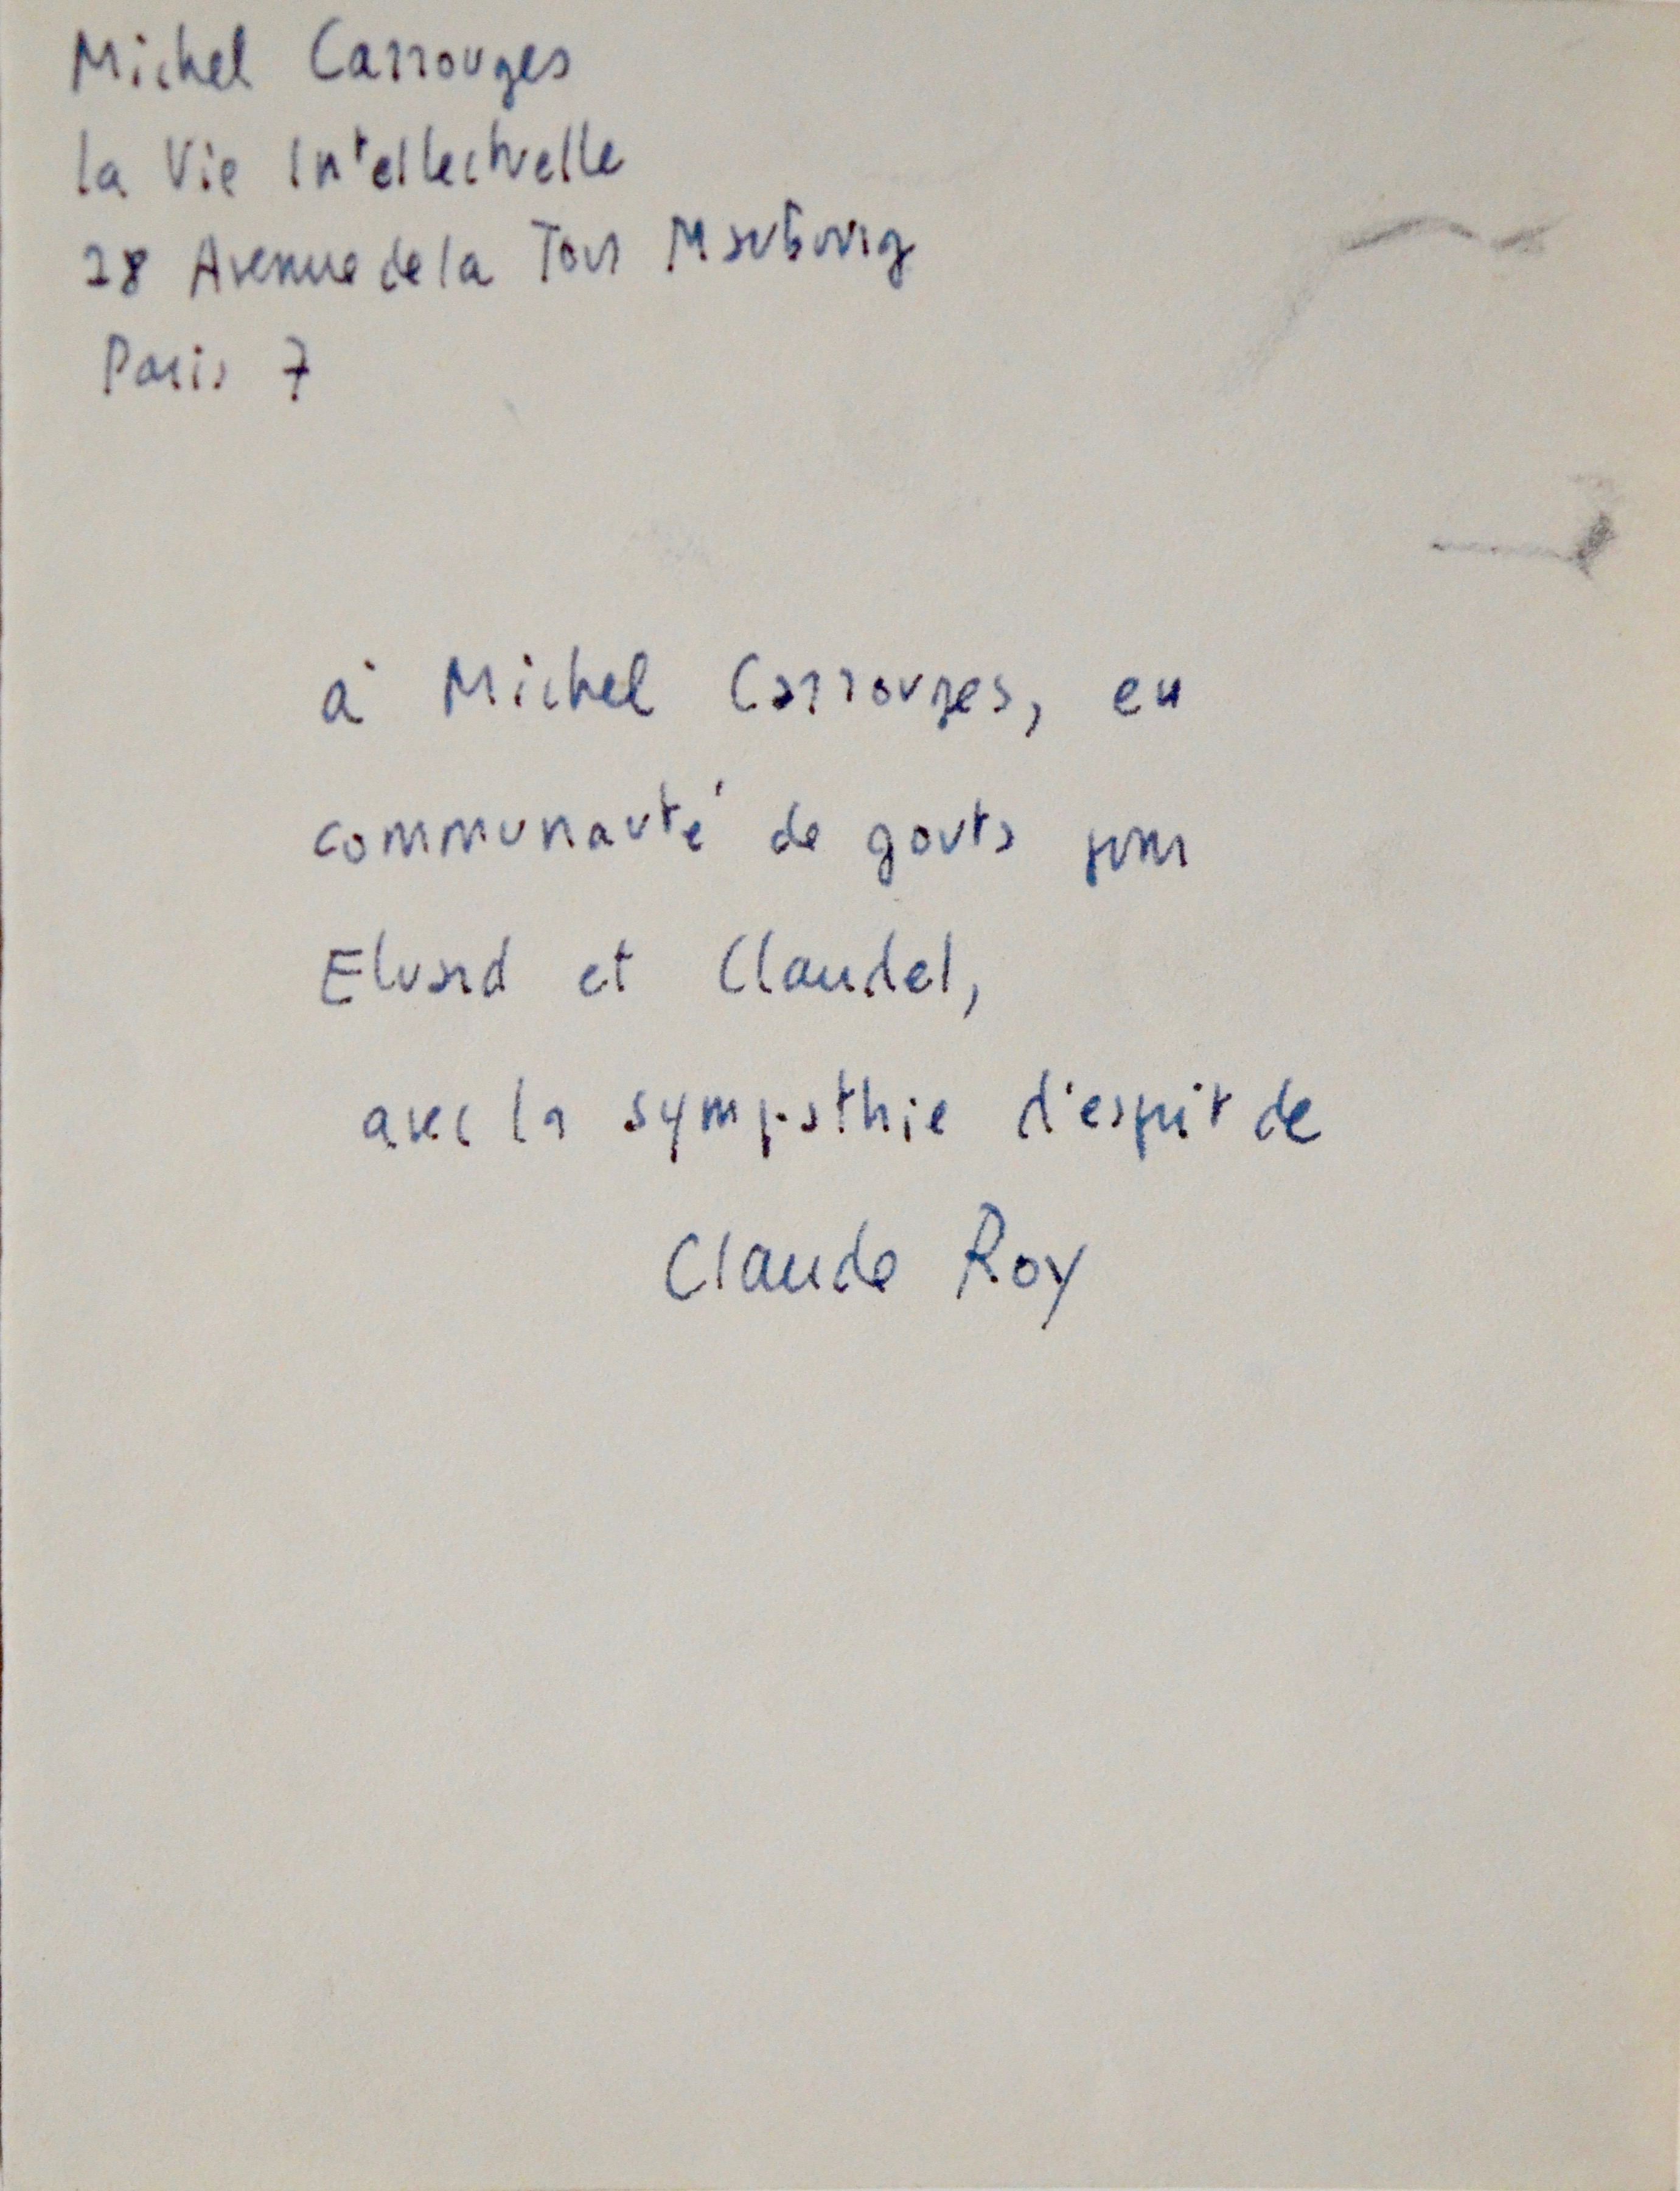 Michel Carrouges
la Vie Intellectuelle
28 Avenue de la Tour Maubourg
Paris 7
à Michel Carrouges, en
communauté de gouts pour
Eluard et Claudel,
avec la sympathie d'esprit de
Claude Roy